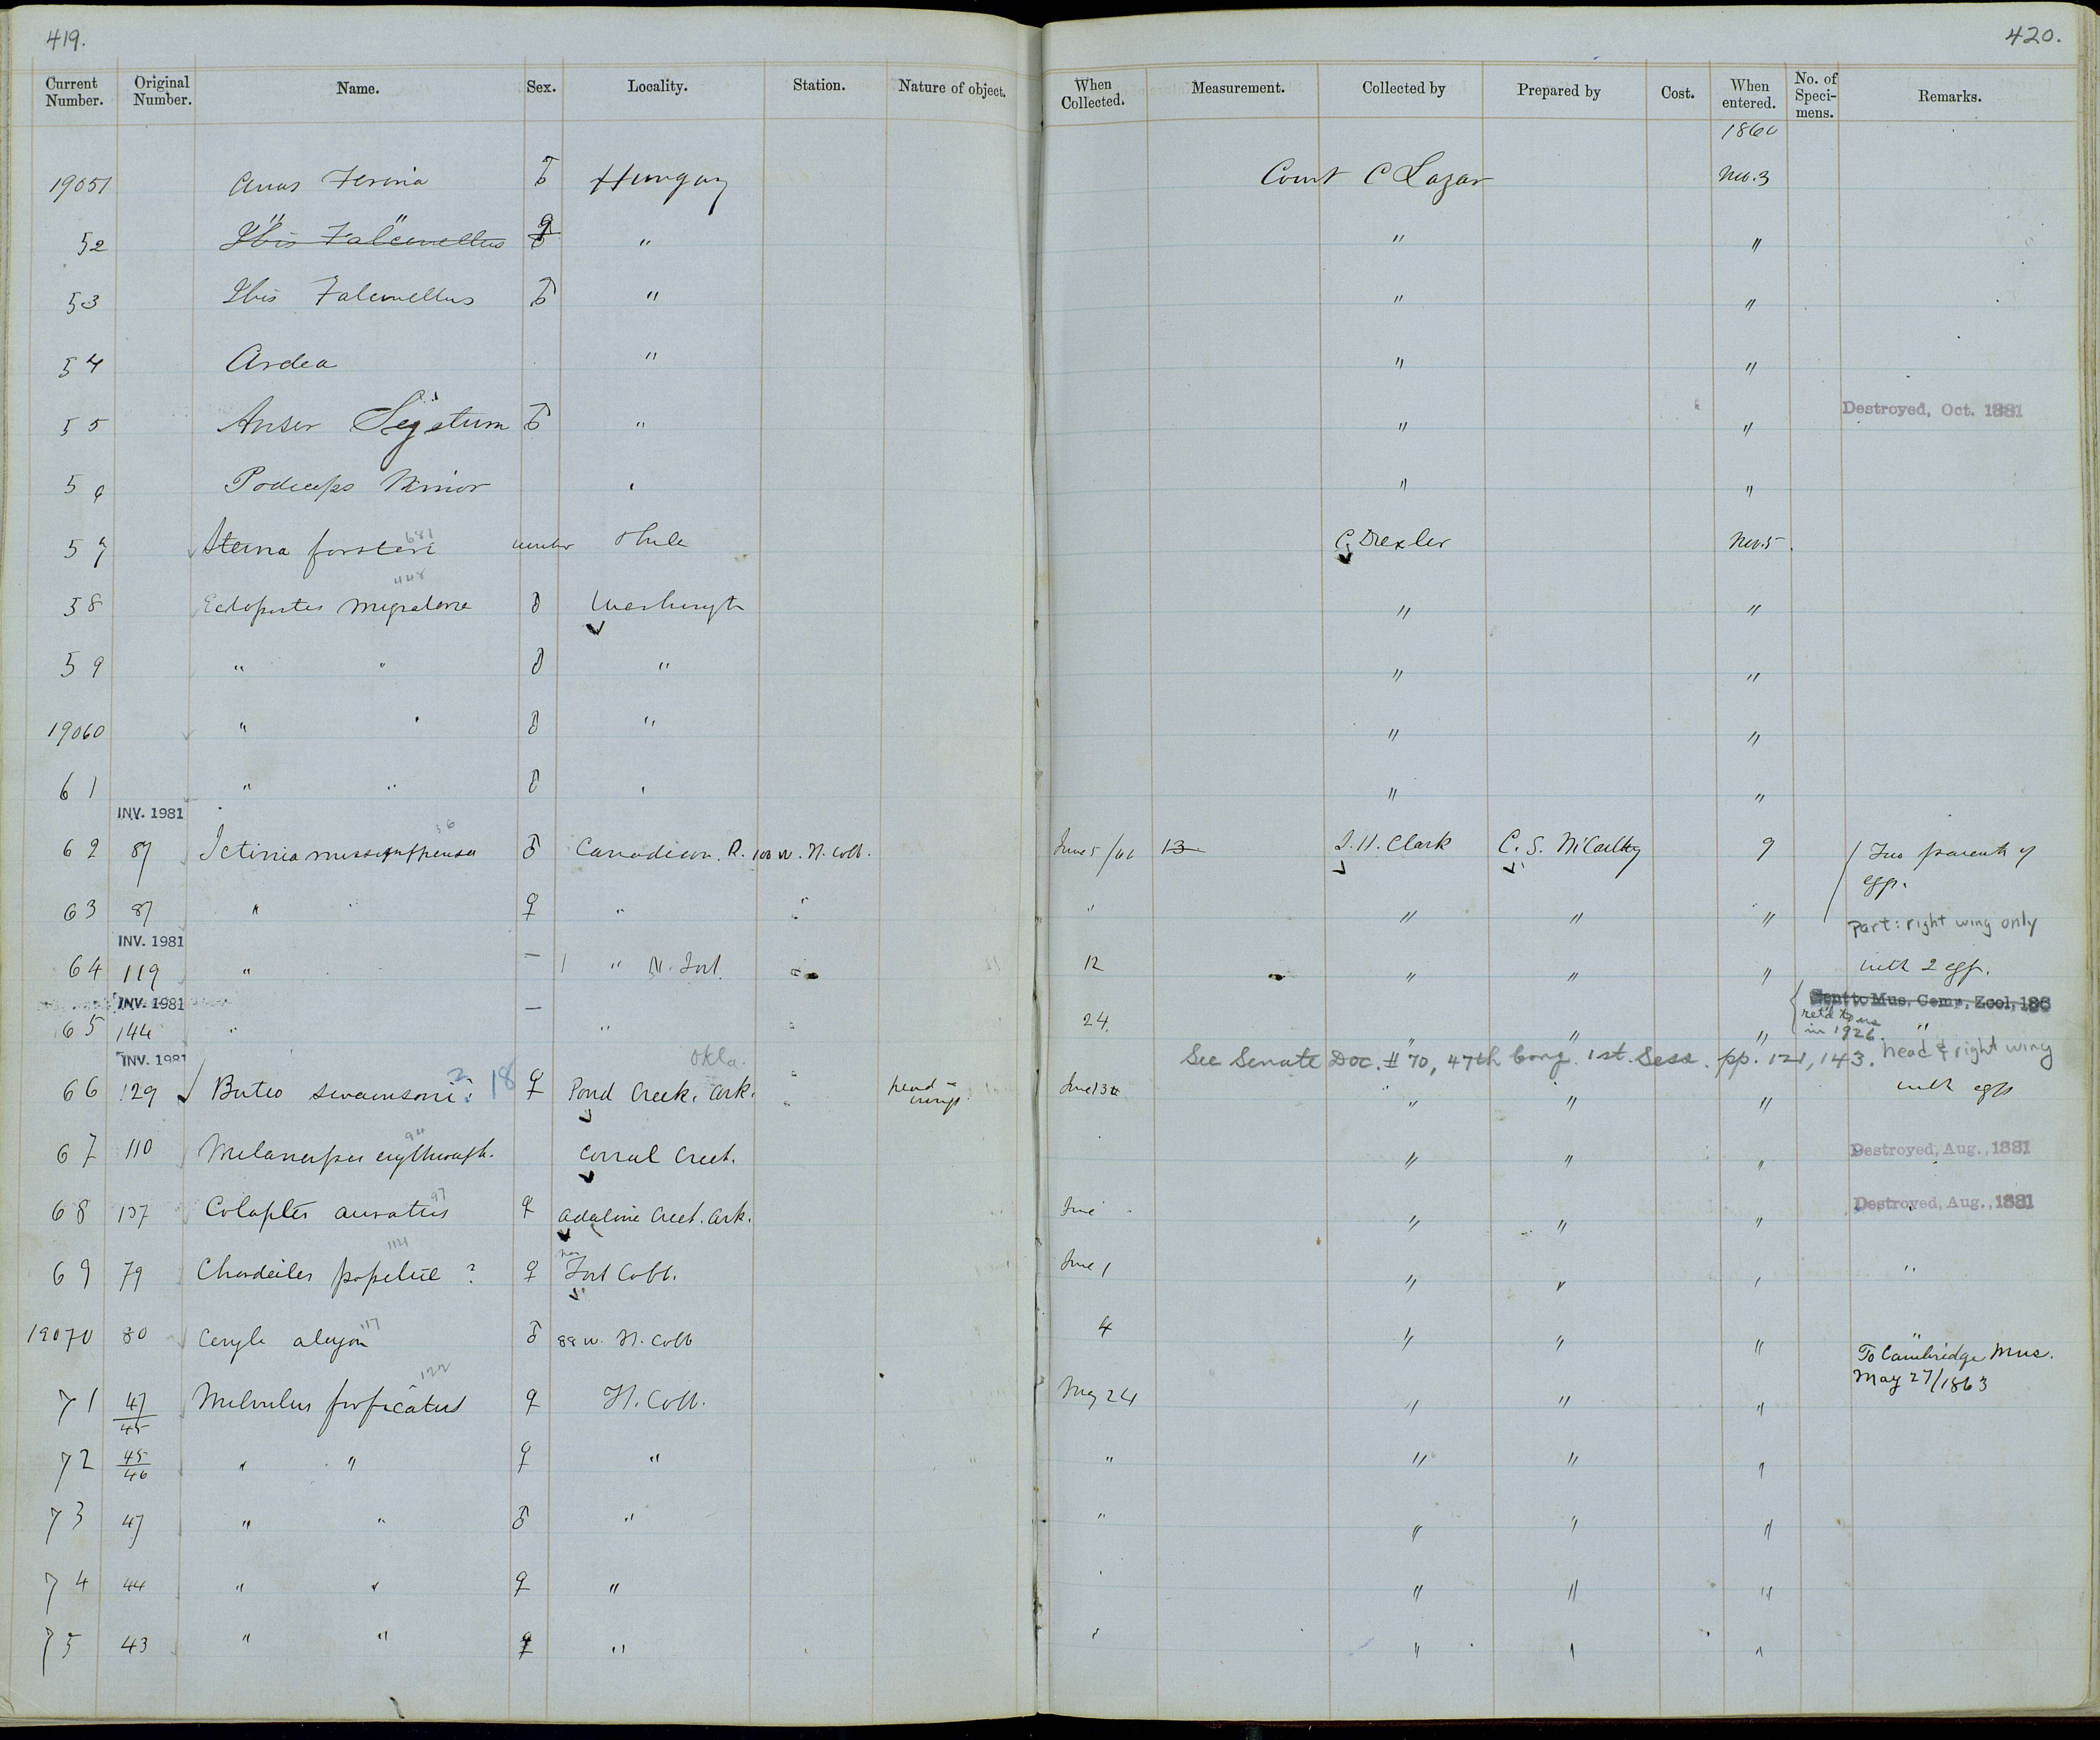 419.
420.
Current Number. Original Number. Name. Sex. Locality. Station. Nature of object. When Collected. Measurement. Collected by Prepared by Cost. When entered. No. of Speci-mens. Remarks.
1860
19051 Anas Ferina ♂ Hungary Count C Lazar Nov. 3
52 Ibis Falcinellus ♀ " " "
53 Ibis Falcinellus ♂ " " "
54 Ardea " " "
55 Anser Segetum ♂ " " " Destroyed, Oct. 1881
5 Podiceps Minor " " "
57 Sterna forsteri 681 C. Drexler Nov. 5
448
58 Ectopistes migratoria ♂ Washingt " "
59 " " ♂ " " "
19060 " " ♂ " " "
61 " " ♂ " " "
INV. 1981
36
62 87 Ictinia mississippiensis ♂ Canadian. R. 100 W. Ft. Cobb. June 5/60 13 J. H. Clark C. S. McCarthy 9 Two parents of eggs.
63 87 " " ♀ " " " " " " Part: right wing only
INV. 1981
64 119 " — " Ft. " 12 " " " with 2 eggs.
INV. 1981
Sent to Mus. Comp. Zool, 186
65 144 " — " " 24. " " " ret'd to us in 1926. "
See Senate Doc. # 70, 47th Cong. 1st. Sess. pp. 121, 143. head & right wing
INV. 1981
Okla.
66 129 Buteo swainsoni ? 18 ♀ Pond Creek. Ark. " head wings June 13 " " " with eggs
94
67 110 Melanerpes erythroceph. Corral Creek. " " " Destroyed, Aug., 1881
97
68 137 Colaptes auratus ♀ Adaline Creek. Ark. June " " " Destroyed, Aug., 1881
69 79 Chordeiles popetue ? ♀ Fort Cobb. June 1 " " " "
117
19070 80 Ceryle alcyon ♂ 88 W. Ft. Cobb 4 " " " "
To Cambridge Mus.
May 27/1863
71 47/45 Milvulus forficatus ♀ Ft. Cobb. May 24 " " "
72 45/46 " " ♀ " " " " "
73 47 " " ♂ " " " " "
74 44 " " ♀ " " " " "
75 43 " " ♀ " " " " "